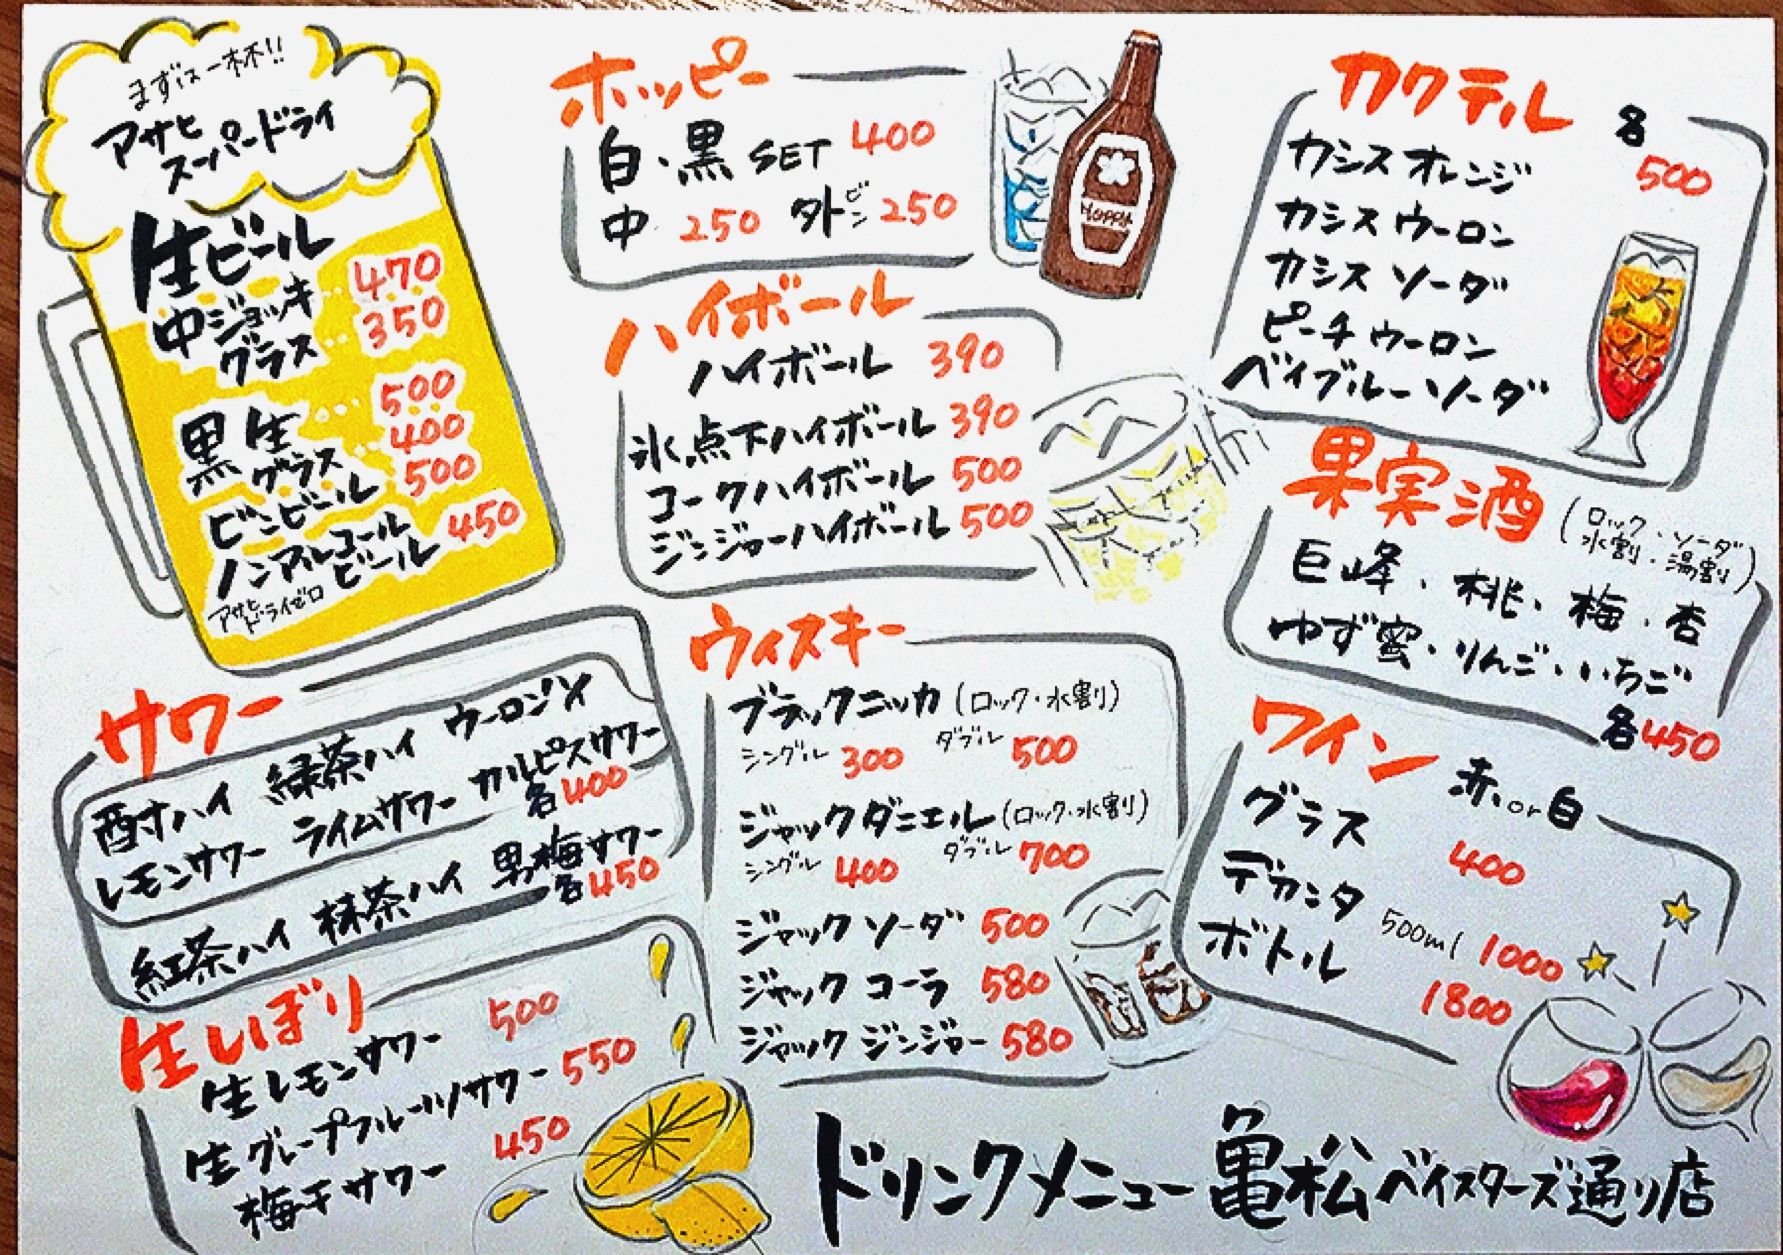 まずは一杯!!
アサヒ
スーパードライ
生ビール
中ジョッキ…470
グラス…350
黒生…500
グラス…400
ビンビール 500
ノンアルコール
ビール 450
アサヒ
ドライゼロ
サワー
酎ハイ 緑茶ハイ ウーロンハイ
レモンサワー ライムサワー カルピスサワー
各400
紅茶ハイ 抹茶ハイ 男梅サワー
各450
生しぼり
生レモンサワー 500
生グレープフルーツサワー 550
梅干サワー 450
ホッピー
白・黒 SET 400
中 250 外ビン 250
HOPPY
ハイボール
ハイボール 390
氷点下ハイボール 390
コークハイボール 500
ジンジャーハイボール 500
ウィスキー
ブラックニッカ (ロック・水割り)
シングル 300 ダブル 500
ジャックダニエル (ロック・水割)
シングル 400 ダブル 700
ジャック ソーダ 500
ジャック コーラ 580
ジャック ジンジャー 580
カクテル 各
500
カシス オレンジ
カシス ウーロン
カシス ソーダ
ピーチ ウーロン
ベイブルーソーダ
果実酒 (ロック・ソーダ
水割・湯割)
巨峰・桃・梅・杏
ゆず蜜・りんご・いちご
各450
ワイン 赤or白
グラス 400
デカンタ 500ml 1000
ボトル 1800
ドリンクメニュー 亀松 ベイスターズ通り店